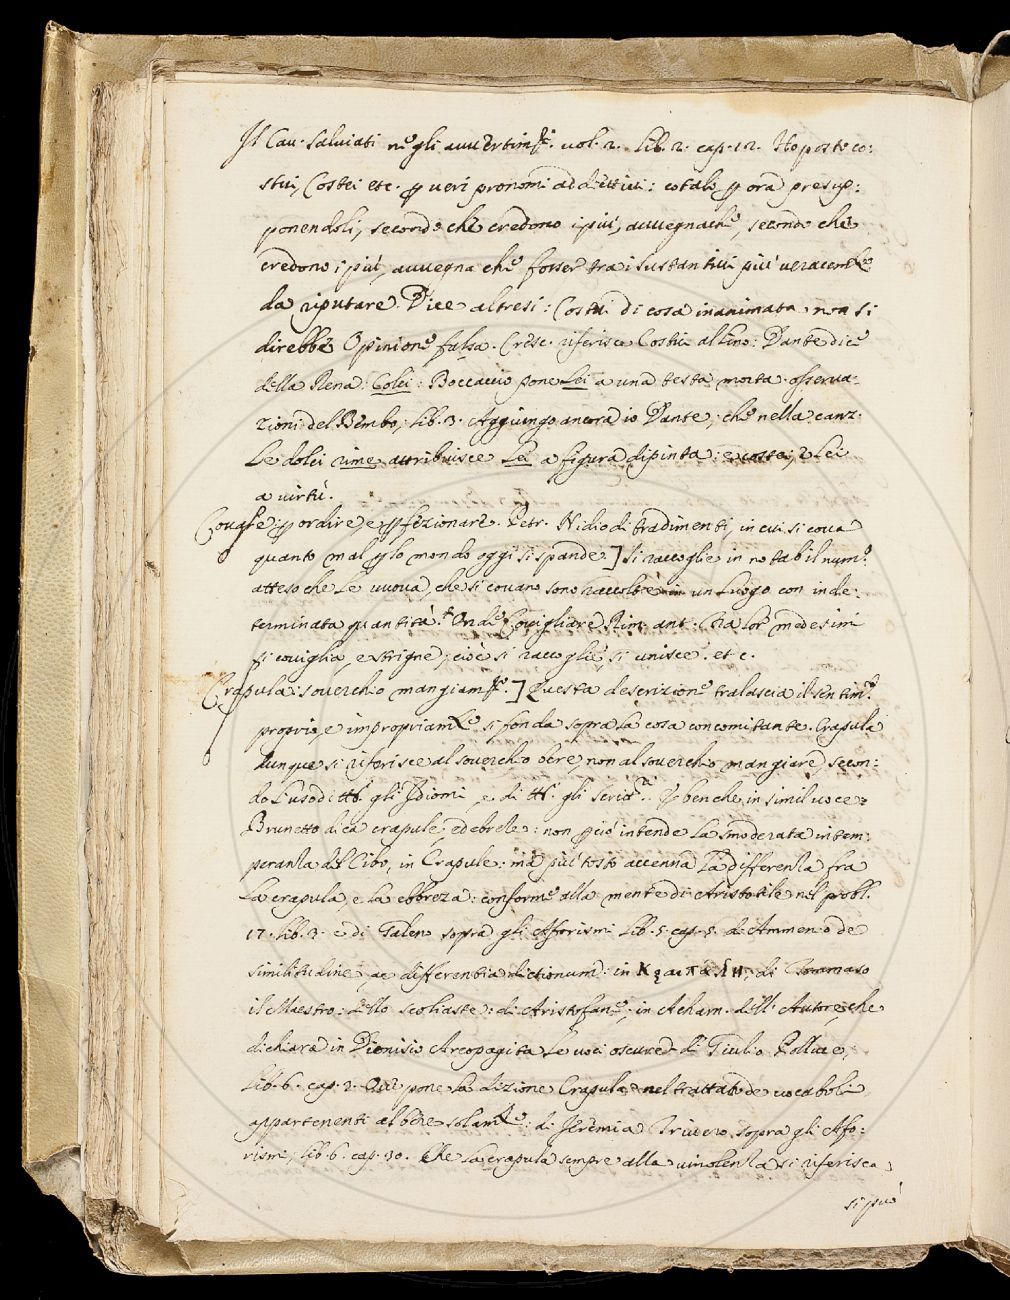 Il Cav. Salviati negli avvertim.ti vol. 2. lib. 2. cap. 12. Ho posto co:
stui, Costei etc. p veri pronomi addiettivi: cotali p ora presup:
ponendoli, secondo che credono i più, avvegnachè, secondo che
credono i più, avvegna che fosser tra i sustantivi più veracem.te
da riputare. Dice altresì: Costui di cosa inanimata non si
direbbe. Opinione falsa. Cresc. riferisce Costui al lino: Dante dice
della Rena: Colei: Boccaccio pone Lei a una testa morta. osserva:
zioni del Bembo, lib. 3. Aggiungo ancora io Dante, che nella canz.
Le dolci rime attribuisce Lei a figura dipinta: e Lei
a virtù.
Covare: p ordire, e pfezionare. Petr. Nido di tradimenti, in cui si cova
quanto mal p lo mondo oggi si spande] Si raccoglie in notabil num.o
atteso che le uova, che si covano sono raccolte in un luogo con inde:
terminata quantità. Onde Covigliare Rim. ant. Ora lor medesimi
si coviglia, e strigne, cioè si raccoglie, si unisce. etc.
Crapula: soverchio mangiam.to] Questa descrizione tralascia il sentim.to
proprio, e impropriam.te si fonda sopra la cosa concomitante. Crapula
dunque si riferisce al soverchio bere, non al soverchio mangiare, secon:
do l'uso di tt.i gli Idiomi, e di tt.i gli Scrit.ri E benche in simil voce
Brunetto dica crapule, ed ebrezze: non pciò intende la smoderata intem:
peranza del Cibo, in Crapule: ma più tosto accenna la differenza fra
la crapula, e la ebbrezza: conforme alla mente di Aristotile nel probl.
17. lib. 3. e di Galeno sopra gli Afforismi lib. 5. cap. 5. di Ammonio de
similitudine, ac differentia dictionum: in Κραιπάλη, di Tommaso
il Maestro: dello scoliaste: di Aristofane, in Acharn. dell' Autore, che
dichiara in Dionisio Areopagita le voci oscure: di Giulio Polluce,
lib. 6. cap. 2. Qui pone la dizione Crapula nel trattato de vocaboli
appartenenti al bere solam.te: di Jeremia Trivero sopra gli Affo:
rismi, lib. 6. cap. 30. Che la crapula sempre alla vinolenza si riferisca,
si può